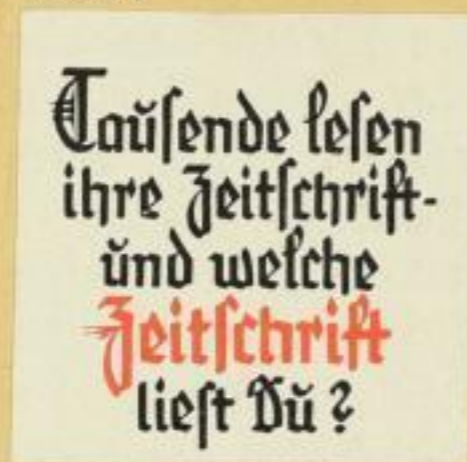 Tauſende leſen
ihre Zeitſchrift-
und welche
Zeitſchrift
lieſt Du?